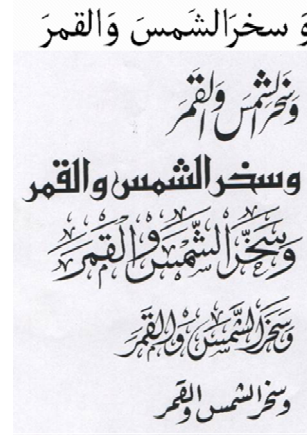 وَ سخرَالشَمسَ وَالقمرَ
وَسَخَّرَ الشَّمسَ وَالقَمَرَ
وسخر الشمس والقمر
وَسَخَّرَ الشَّمْسَ وَالْقَمَرَ
وَسَخَّرَ الشَّمسَ وَالقَمَرَ
وسخر الشمس والقمر